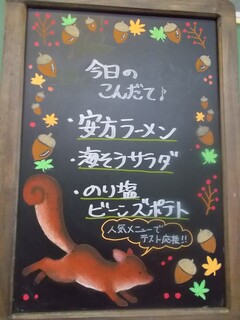 今日の
こんだて♪
・安方ラーメン
・海そうサラダ
・のり塩
ビーンズポテト
人気メニューで
テスト応援!!